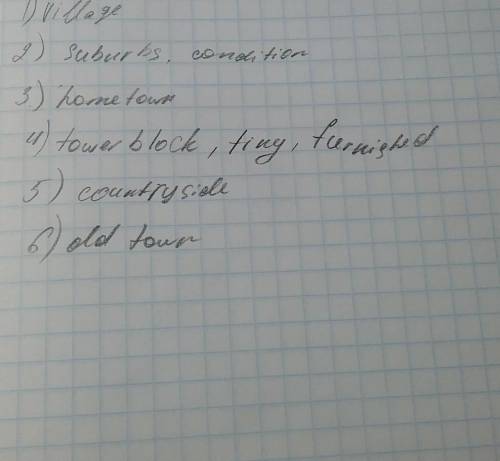 1) village
2) suburbs, condition
3) hometown
4) tower block, tiny, furnished
5) countryside
6) old town